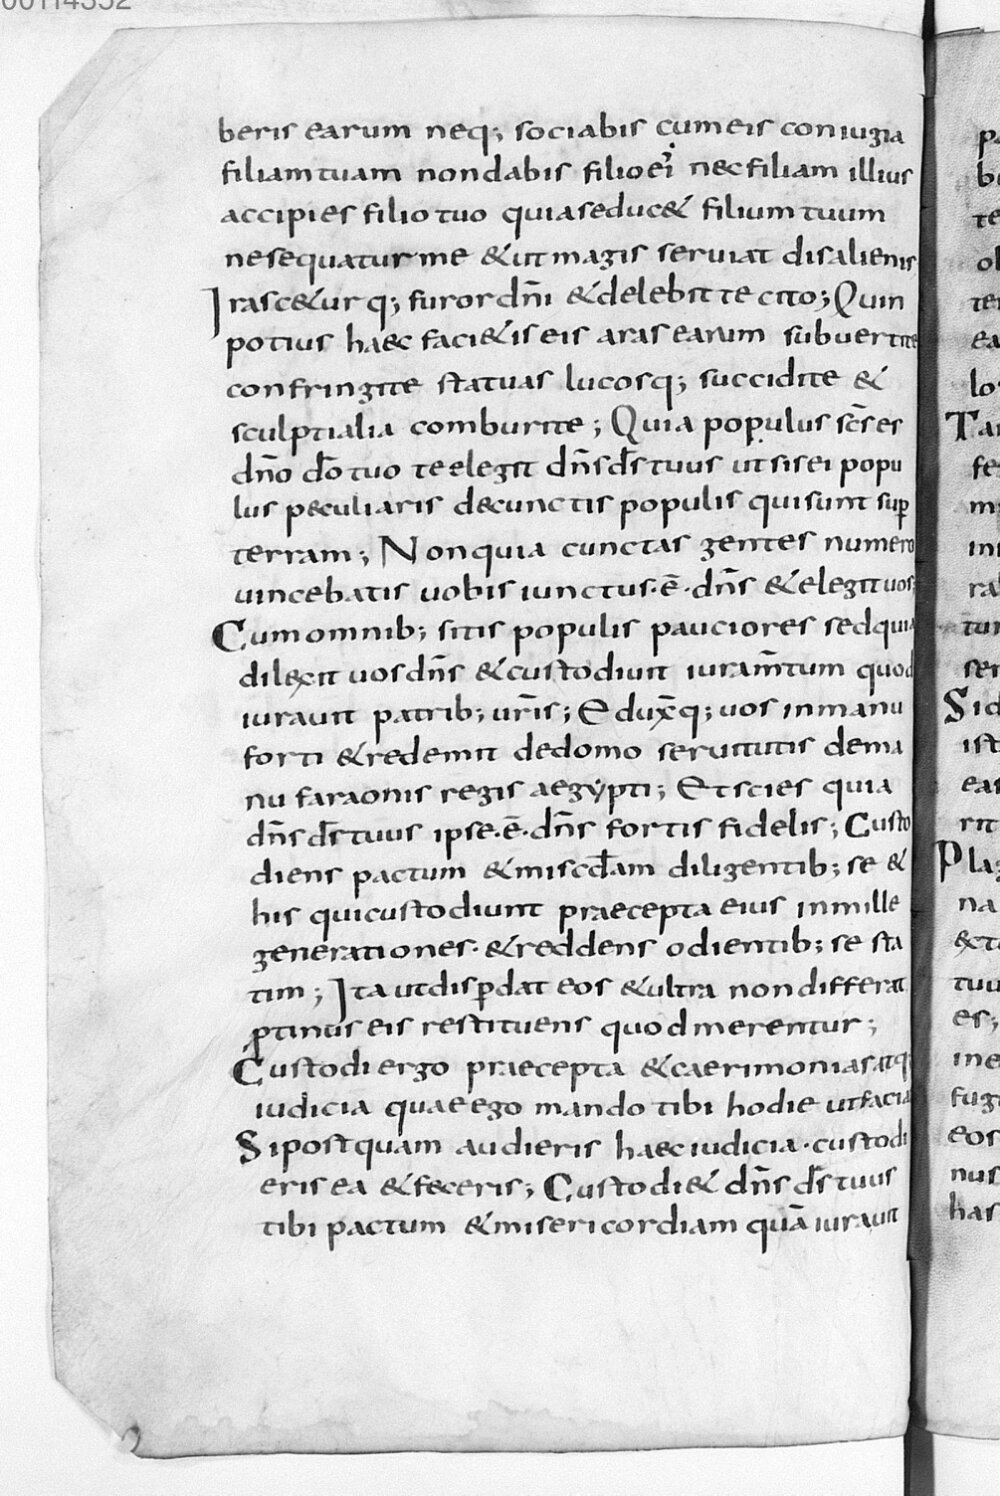 00114352
beris earum neq; sociabis cum eis coniugia
filiam tuam non dabis filio ei' nec filiam illius
accipies filio tuo quia seduc& filium tuum
ne sequatur me & ut magis seruiat dis alienis
Irasc&ur q; furor dn̄i & delebit te cito; Quin
potius haec faci&is eis aras earum subuertite
confringite statuas lucosq; succidite &
sculptialia comburite; Quia populus sc̄s es
dn̄o dō tuo te elegit dn̄s ds̄ tuus ut sis ei popu
lus peculiaris de cunctis populis qui sunt sup̄
terram; Non quia cunctas gentes numero
uincebatis uobis iunctus · ē · dn̄s & elegit uos
Cum omnib; sitis populis pauciores sed quia
dilexit uos dn̄s & custodiuit iuram̄tum quod
iurauit patrib; ur̄is; Eduxq̄; uos in manu
forti & redemit de domo seruitutis de ma
nu faraonis regis aegypti; Et scies quia
dn̄s ds̄ tuus ipse · ē · dn̄s fortis fidelis; Custo
diens pactum & miscd̄am diligentib; se &
his qui custodiunt praecepta eius in mille
generationes · & reddens odientib; se sta
tim; Ita ut disp̄dat eos & ultra non differat
p̄tinus eis restituens quod merentur;
Custodi ergo praecepta & caerimonias atq;
iudicia quae ego mando tibi hodie ut facias
Si postquam audieris haec iudicia · custodi
eris ea & feceris; Custodi& dn̄s ds̄ tuus
tibi pactum & misericordiam quā iurauit